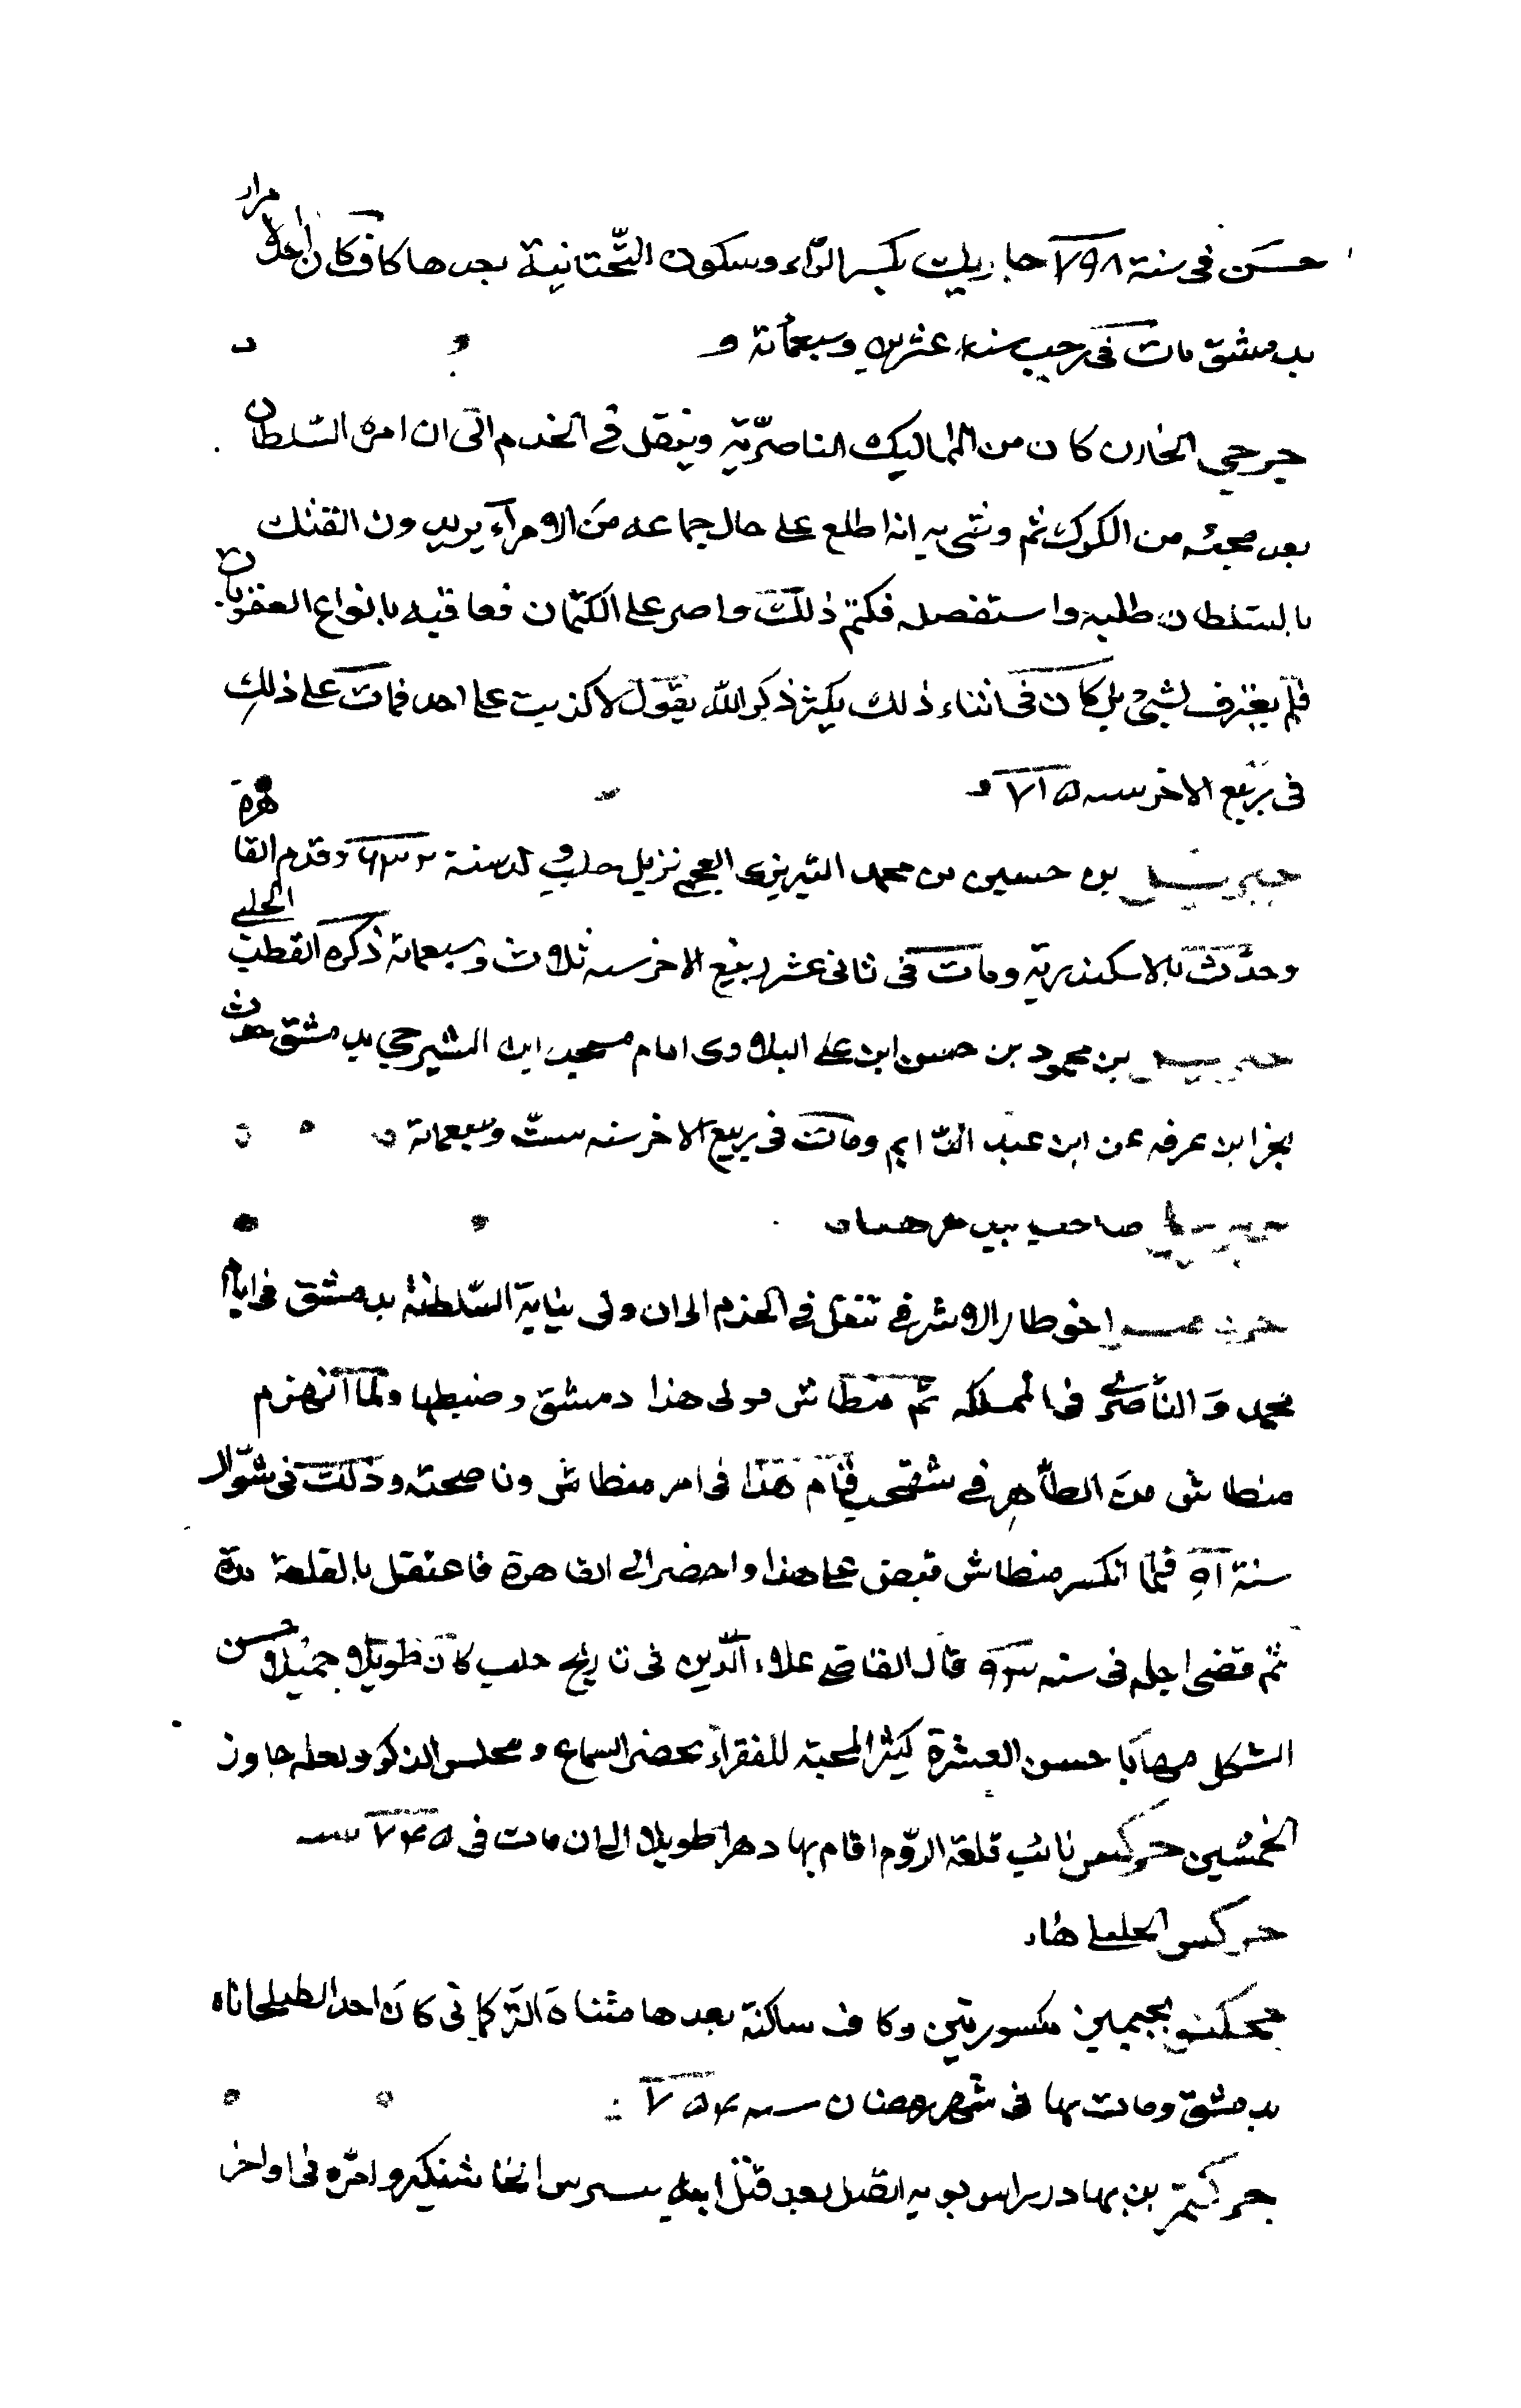 حسن فى سنة ٧٩٨ جاريك بكسر الراء وسكون التحتانية بعدها كاف كان احد الامراء
بدمشق مات فى رجب سنة عشرين وسبعمائة
جرجي الخازن كان من المماليك الناصرية وينتقل فى الخدم الى ان امره السلطان
بعد مجيئه من الكرك ثم وشى به انه اطلع على حال جماعه من الامرآء يريدون الفتك
بالسلطان طلبه واستفصله فكتم ذلك واصر على الكتمان فعاقبه بانواع العقوبات
فلم يعترف لشيئ بل كان فى اثناء ذلك يكثر ذكر الله يقول لا كذبت على احد فمات على ذلك
فى ربيع الاخر سنه ٧١٥
جبريل بن حسين بن محمد التبريزى العجمي نزيل حلب ولد سنة ٦٣٢ وقدم القاهرة
وحدث بالاسكندرية ومات فى ثانى عشر ربيع الاخر سنه ثلاث وسبعمائة ذكره القطب الحلبي
جبريل بن محمود بن حسن ابن على البلاوى امام مسجد ابن الشيرجي بدمشق حدث
بجزا ابن عرفه عن ابن عبد الدايم ومات فى ربيع الاخر سنه ست وسبعمائة
صاحب بيد
اخو طاز الاشرفي تنقل في الخدم الى ان ولى نيابة السلطنة بدمشق فى ايام
محمد و الناصرى فى المملكه ثم منطاش فولى هذا دمشق وضبطها ولما انهزم
منطاش من الظاهر في شقحب فقام هذا فى امر منطاش وناصحته وذلك فى شوال
سنة ٩١ فلما انكسر منطاش قبض على هذا واحضر الى القاهرة فاعتقل بالقلعة مدة
ثم قضى اجله فى سنه ٩٣ قال القاضي علاء الدين فى تاريخ حلب كان طويلا جميلا حسن
الشكل مهابا حسن العشرة كثير المحبة للفقرآء يحضر السماع ومجلس الذكر ولعله جاوز
الخمسين جركس نائب قلعة الروم اقام بها دهرا طويلا الى ان مات فى ٧٤٥ سنه
جركس الحلبى
ججكتو بجيمين مكسورتين وكاف ساكنة بعدها مثناة التركمانى كان احد الطبلخاناه
بدمشق ومات بها فى شهر رمضان سنه ٧٥٤
جركتمر بن بهادر راس نوبه اتصل بعد قتل ابيه ببيبرس الجاشنكير وامره فى اواخر